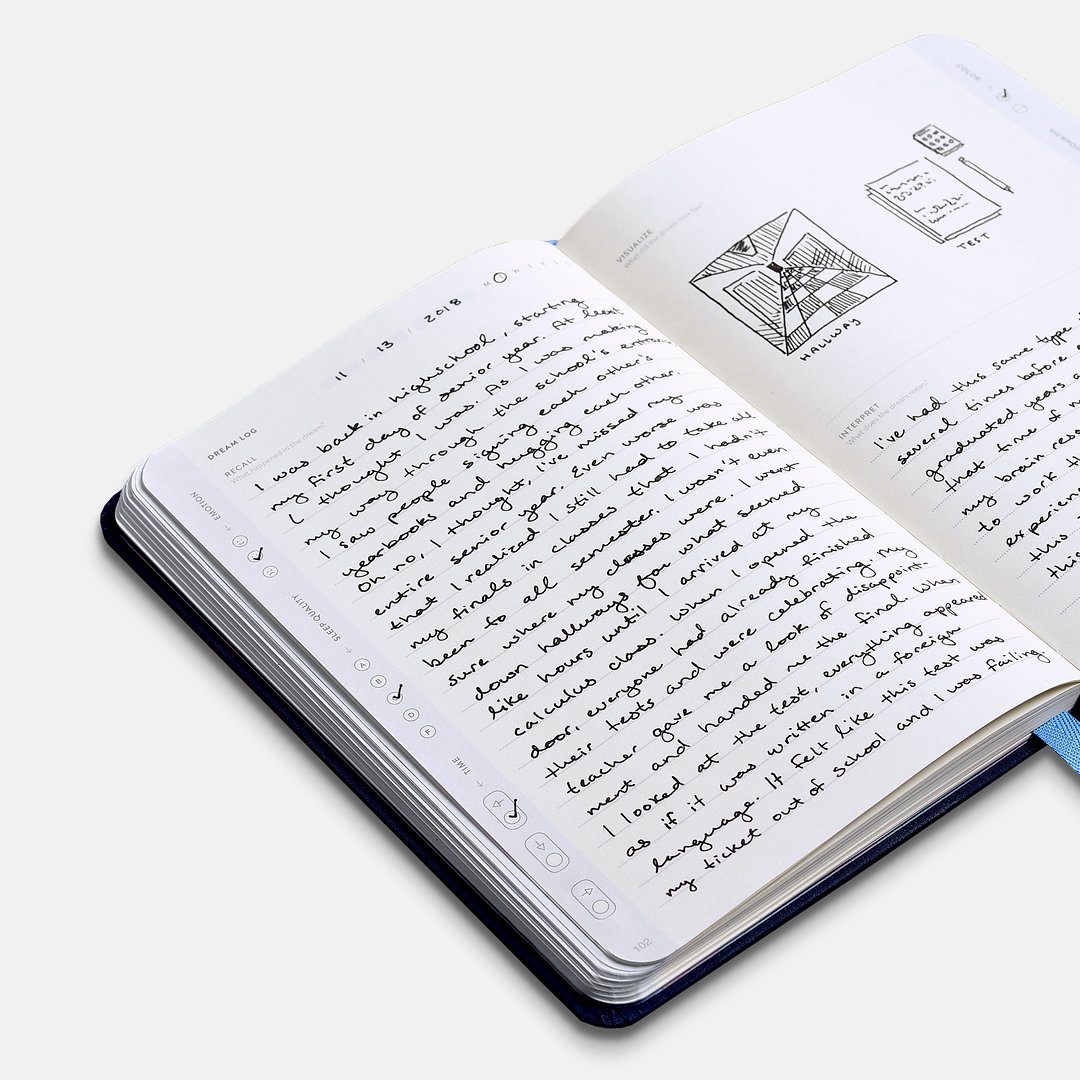 11 / 13 / 2018
M T W
DREAM LOG
RECALL
What happened in the dream?
I was back in highschool, starting
my first day of senior year. At least
I thought I was. As I was making
my way through the school's
I saw people signing each other's
yearbooks and hugging each other.
Oh no, I thought, I've missed my
entire senior year. Even worse was
that I realized I still had to take all
my finals in classes that I hadn't
been to all semester. I wasn't even
sure where my classes were. I went
down hallways for what seemed
like hours until I arrived at my
calculus class. When I opened the
door, everyone had already finished
their tests and were celebrating. My
teacher gave me a look of disappoint-
ment and handed me the final. When
I looked at the test, everything appeared
as if it was written in a foreign
language. It felt like this test was
my ticket out of school and I was failing.
EMOTION
SLEEP QUALITY
A
B
D
F
TIME
102
VISUALIZE
What did the dream look like?
HALLWAY
TEST
INTERPRET
What does the dream mean?
I've had this same type
several times before
graduated years
that time of
my brain
to work